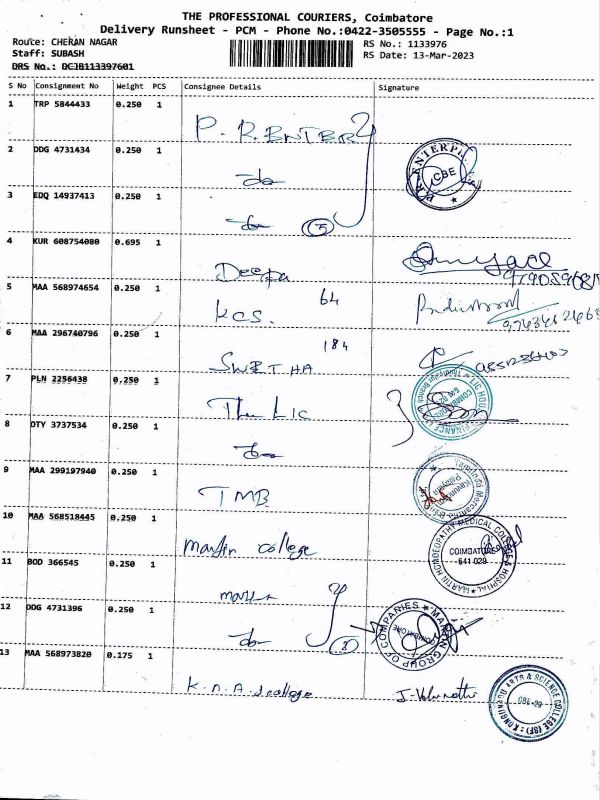 THE PROFESSIONAL COURIERS, Coimbatore
Delivery Runsheet - PCM - Phone No.:0422-3505555 - Page No.:1
Route: CHERAN NAGAR
RS No.: 1133976
Staff: SUBASH
RS Date: 13-Mar-2023
DRS No.: DCJB113397601
S No Consignment No Weight PCS Consignee Details Signature
1 TRP 5844433 0.250 1
P. R. ENTER
2 DDG 4731434 0.250 1
do
P.R. ENTERPRI CBE
3 EDQ 14937413 0.250 1
do
4 KUR 608754080 0.695 1
Deepa
5 MAA 568974654 0.250 1
KCS. 64
6 MAA 296740796 0.250 1
SWETHA 184
7 PLN 2256438 0.250 1
LIC
8 OTY 3737534 0.250 1
do
9 MAA 299197940 0.250 1
TMB
10 MAA 568518445 0.250 1
Martin college
MARTIN HOMOEOPATHY MEDICAL COLLEGE & HOSPITAL
COIMBATORE
641 029
11 BOD 366545 0.250 1
12 DDG 4731396 0.250 1
do
MARTIN GROUP OF COMPANIES
COIMBATORE
13 MAA 568973820 0.175 1
K.N.A.S college
KONGUNADU ARTS & SCIENCE COLLEGE (SF)
CBE-29